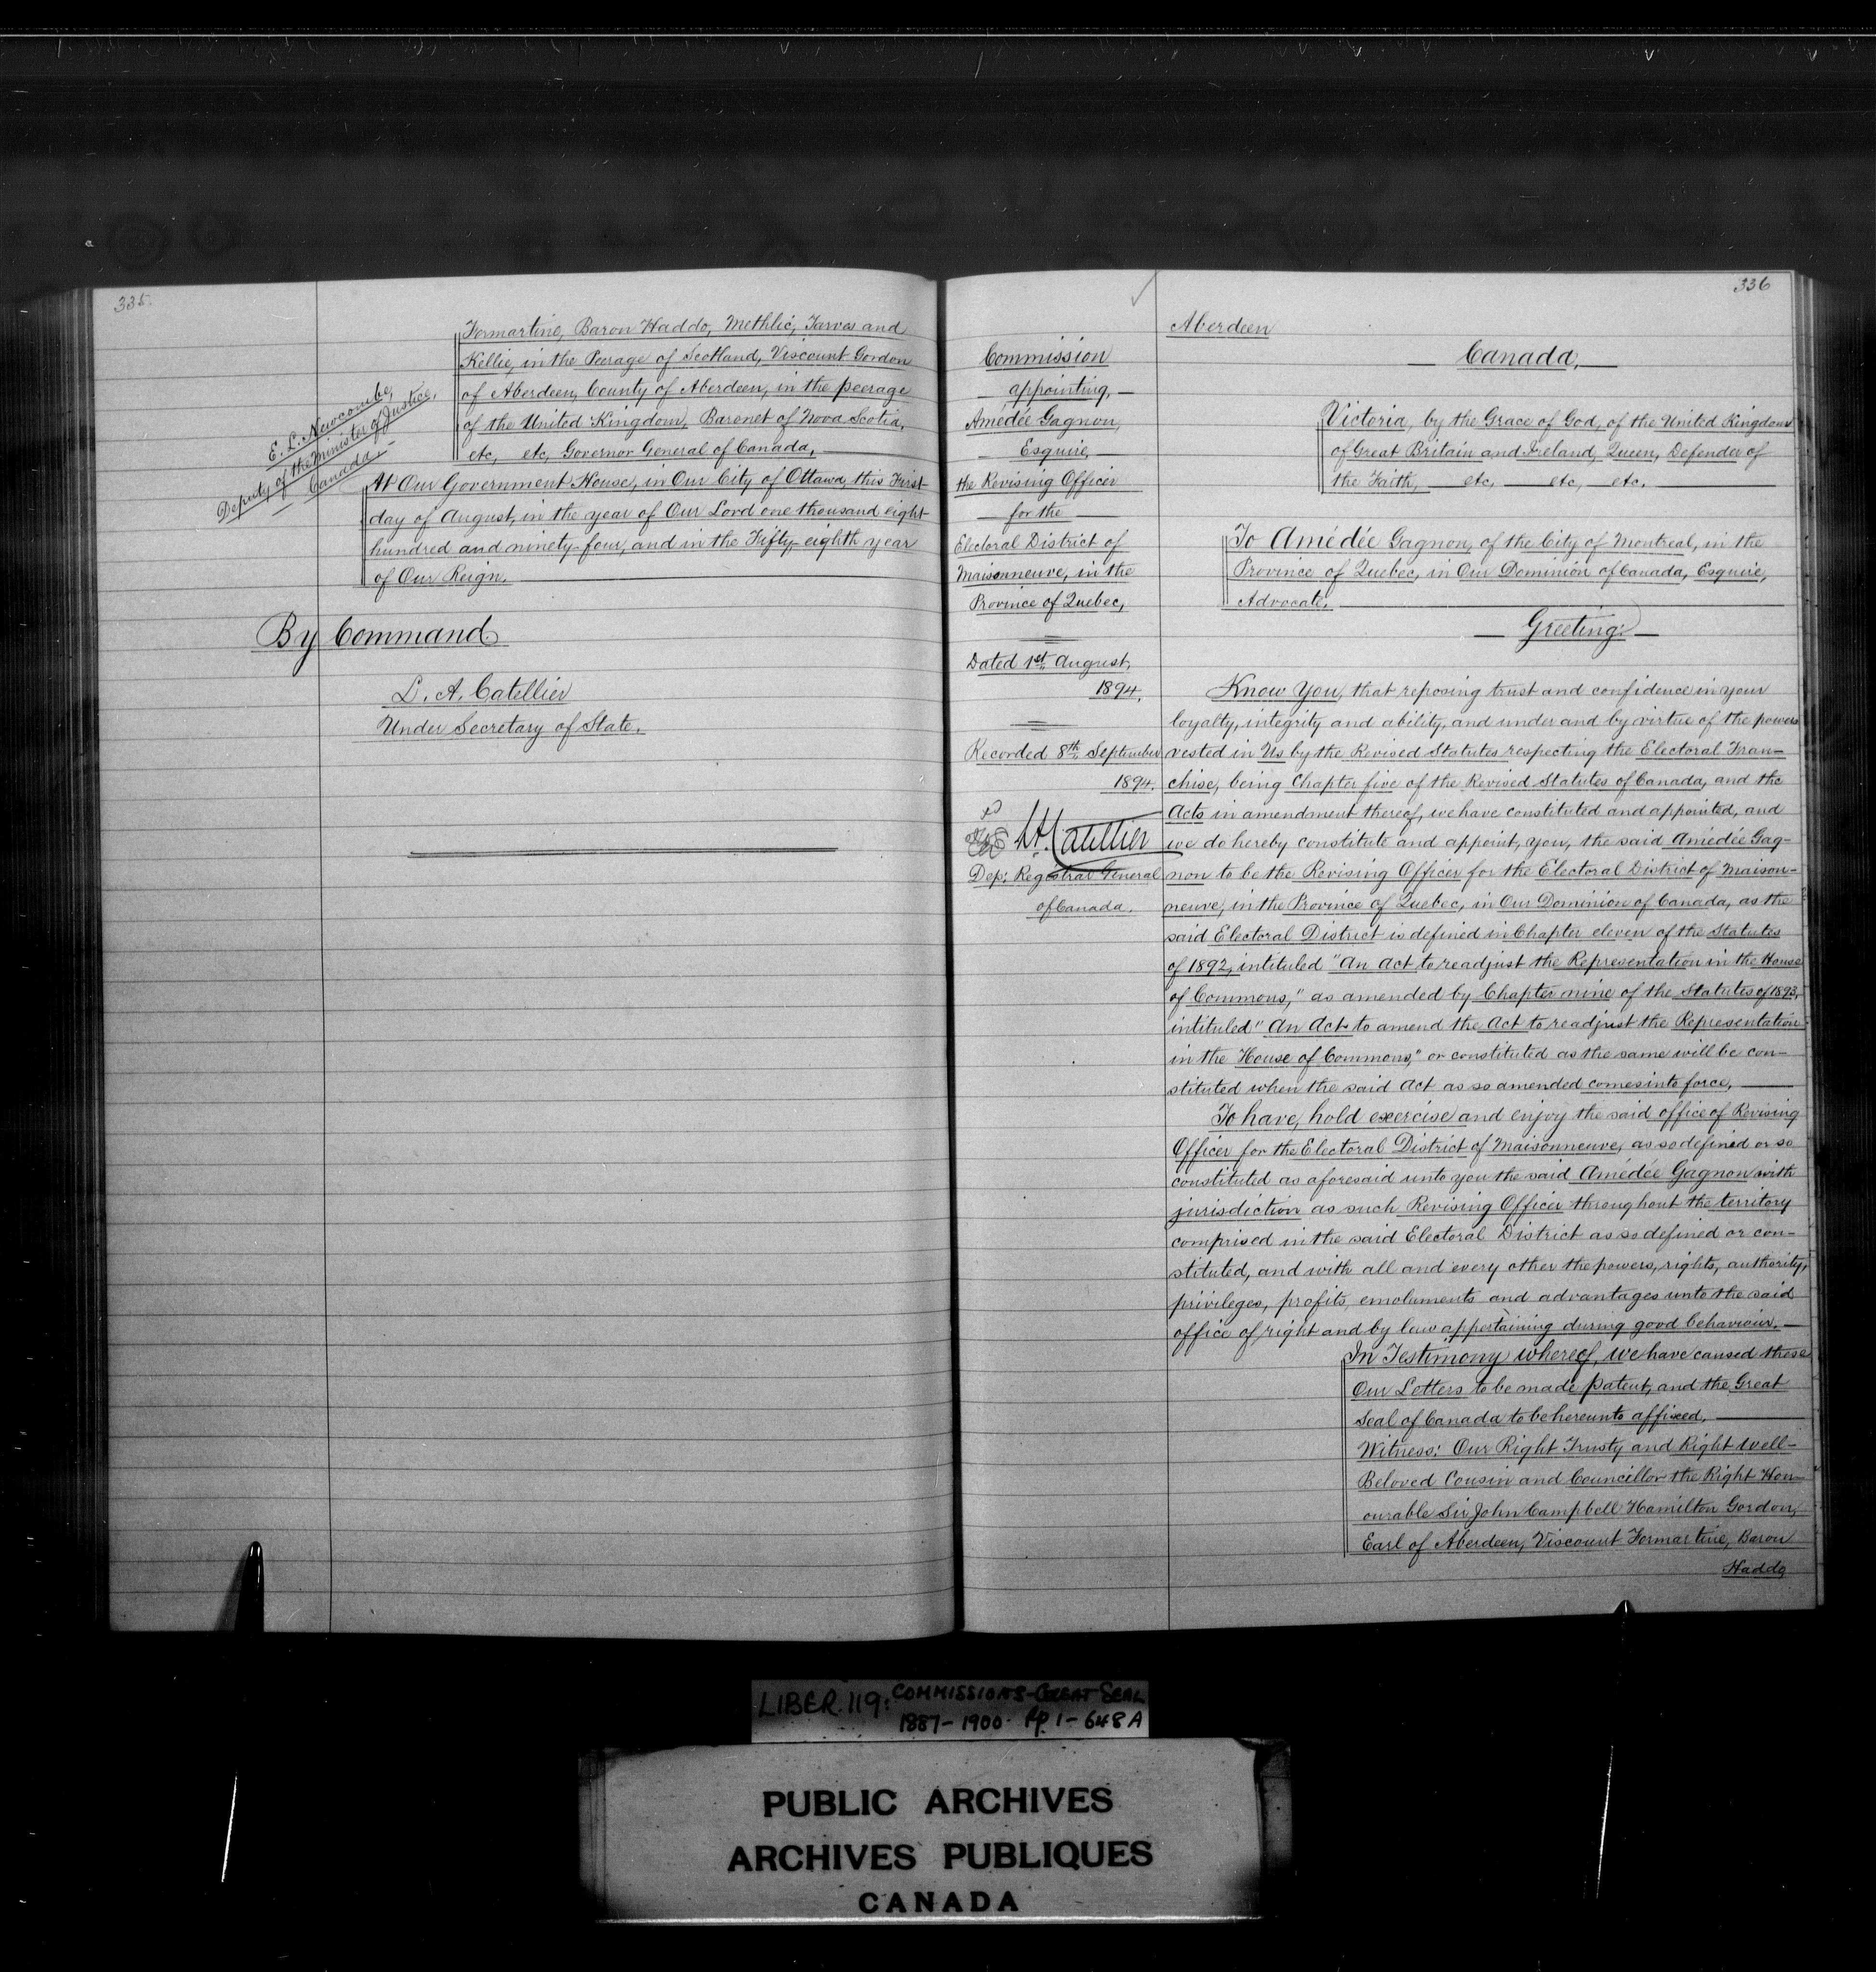 335.
Formartine, Baron Haddo, Methlic, Tarves and
Kellie, in the Peerage of Scotland, Viscount Gordon
of Aberdeen, County of Aberdeen, in the peerage
of the United Kingdom, Baronet of Nova Scotia,
etc, etc, Governor General of Canada,
At Our Government House, in Our City of Ottawa, this First
day of August, in the year of Our Lord one thousand eight
hundred and ninety-four, and in the Fifty-eighth year
of Our Reign.
E. L. Newcombe,
Deputy of the Minister of Justice,
Canada.
By Command
L. A. Catellier
Under Secretary of State.
336
Commission
appointing,
Amédée Gagnon,
Esquire,
the Revising Officer
for the
Electoral District of
Maisonneuve, in the
Province of Quebec,
Dated 1st August,
1894.
Recorded 8th September
1894.
L.A. Catellier
Dep: Registrar General
of Canada.
Aberdeen
Canada,
Victoria, by the Grace of God, of the United Kingdom
of Great Britain and Ireland, Queen, Defender of
the Faith, etc, etc, etc.
To Amédée Gagnon, of the City of Montreal, in the
Province of Quebec, in Our Dominion of Canada, Esquire,
Advocate.
Greeting:
Know You, that reposing trust and confidence in your
loyalty, integrity and ability, and under and by virtue of the powers
vested in Us by the Revised Statutes respecting the Electoral Fran-
chise, being Chapter five of the Revised Statutes of Canada, and the
Acts in amendment thereof, we have constituted and appointed, and
we do hereby constitute and appoint, you, the said Amédée Gag-
non to be the Revising Officer for the Electoral District of Maison-
neuve, in the Province of Quebec, in Our Dominion of Canada, as the
said Electoral District is defined in Chapter eleven of the Statutes
of 1892, intituled "An Act to readjust the Representation in the House
of Commons," as amended by Chapter nine of the Statutes of 1893,
intituled "An Act to amend the Act to readjust the Representation
in the House of Commons," or constituted as the same will be con-
stituted when the said Act as so amended comes into force.
To have, hold exercise and enjoy the said office of Revising
Officer for the Electoral District of Maisonneuve, as so defined or so
constituted as aforesaid unto you the said Amédée Gagnon with
jurisdiction as such Revising Officer throughout the territory
comprised in the said Electoral District as so defined or con-
stituted, and with all and every other the powers, rights, authority,
privileges, profits, emoluments and advantages unto the said
office of right and by law appertaining during good behaviour.
In Testimony whereof, we have caused these
Our Letters to be made Patent, and the Great
Seal of Canada to be hereunto affixed.
Witness: Our Right Trusty and Right Well-
Beloved Cousin and Councillor the Right Hon-
ourable Sir John Campbell Hamilton Gordon,
Earl of Aberdeen, Viscount Formartine, Baron
Haddo
LIBER.119: COMMISSIONS-GREAT SEAL
1887-1900- Pp. 1-648A
PUBLIC ARCHIVES
ARCHIVES PUBLIQUES
CANADA